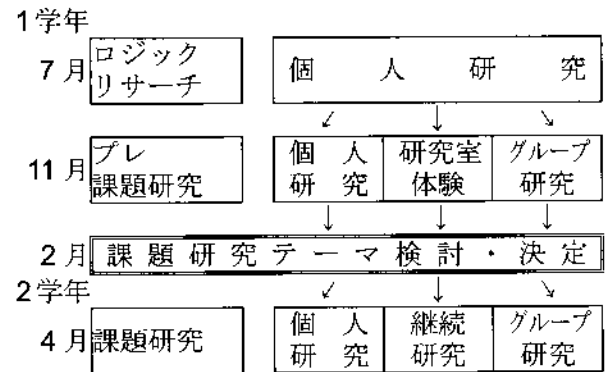 1学年
7月 ロジック リサーチ 個人研究
11月 プレ 課題研究 個人研究 研究室体験 グループ研究
2月 課題研究テーマ検討・決定
2学年
4月 課題研究 個人研究 継続研究 グループ研究